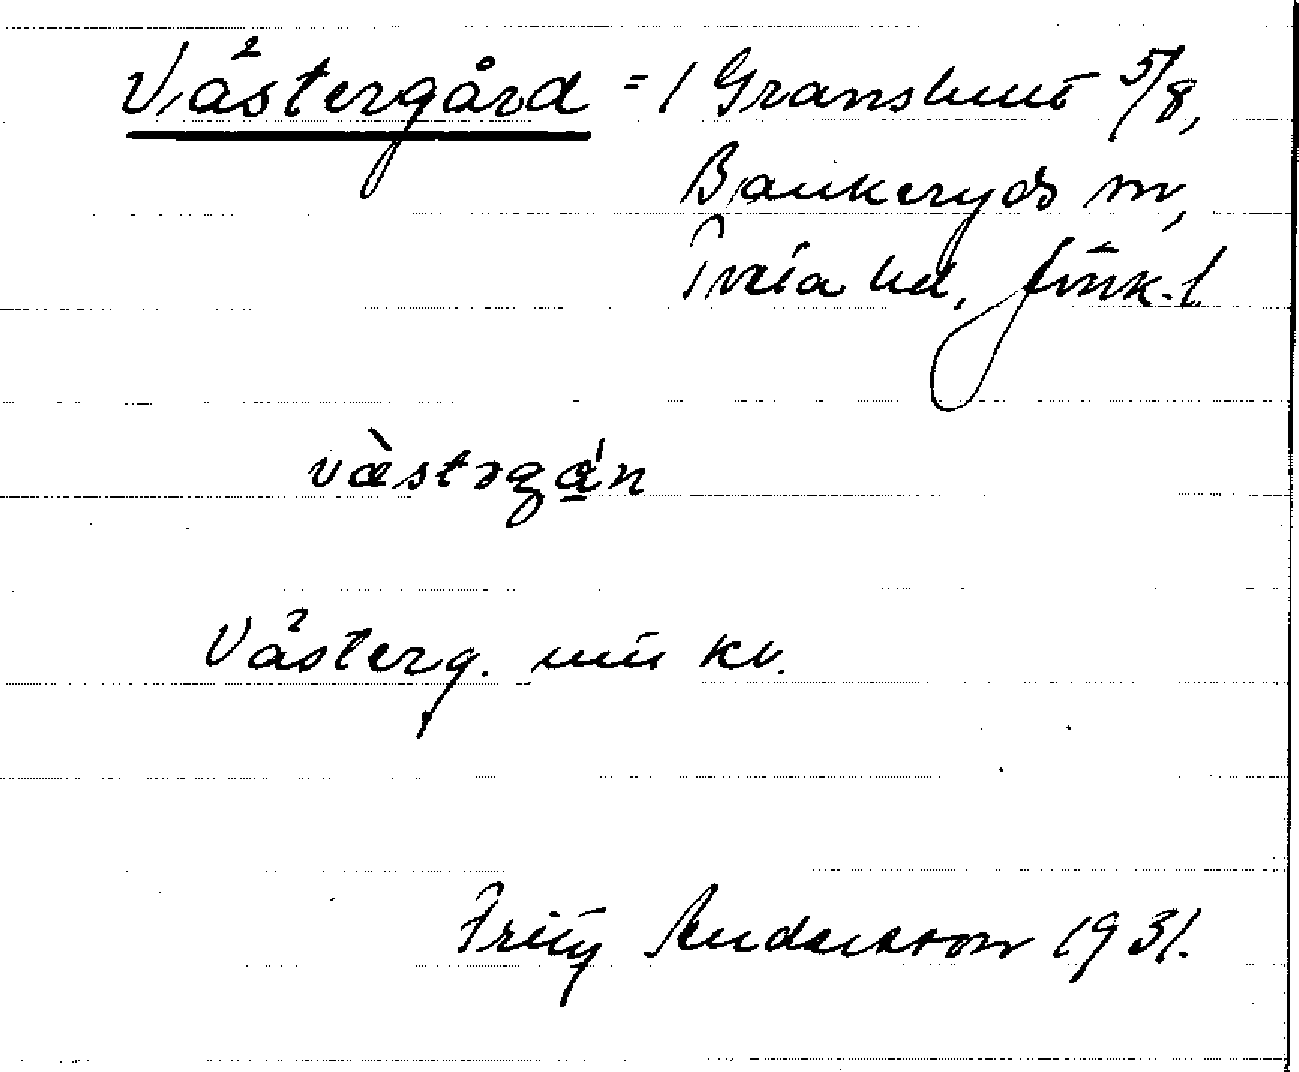 Västergård = / Granshult 5/8,
Bankeryds sn,
Tveta hd, Jönk. l
västərga̱ɳ
Västerg.
Fritz Andersson 1931.